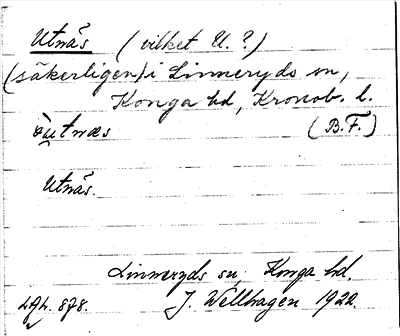 Utnäs (vilket U.?)
(säkerligen) i Linneryds sn,
Konga hd, Kronob. l.
utnæs (B.F.)
Utnäs.
Linneryds sn, Konga hd.
878. J. Wellhagen 1922.